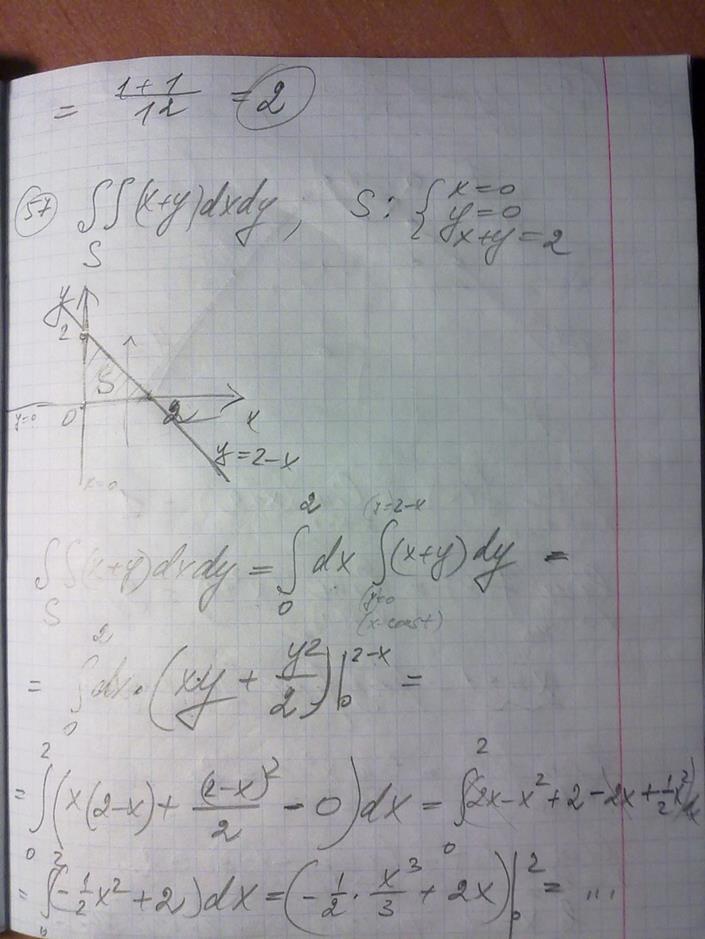 = (1+1)/12 = 2
57) ∫∫(x+y)dxdy ; S: { x=0
S y=0
x+y=2
y
2
S
y=0 0 2 x
y=2-x
x=0
∫∫_S (x+y)dxdy = ∫_0^2 dx ∫_{y=0}^{y=2-x} (x+y)dy =
(x-const)
= ∫_0^2 dx · (xy + y²/2)|_0^{2-x} =
= ∫_0^2 (x(2-x) + (2-x)²/2 - 0)dx = ∫_0^2 (2x-x²+2-2x+½x²)dx
= ∫_0^2 (-½x²+2)dx = (-½ · x³/3 + 2x)|_0^2 = ...